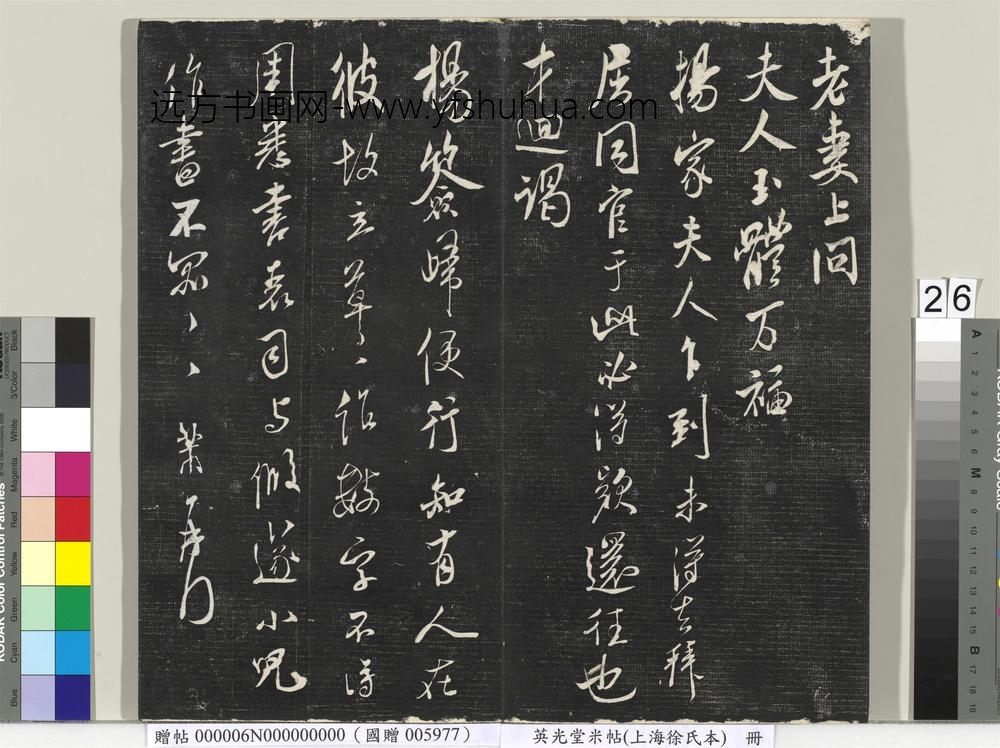 老妻上問
夫人玉體万福
揚家夫人乍到未得去拜
居同官于此必得欵還往也
才迴謁
楊簽歸便行知有人在
彼故立草、作數字不得
周悉書表司与修遞小兒
作書不宣、、芾頓首
远方书画网-www.yfshuhua.com
26
贈帖 000006N000000000（國贈 005977）
英光堂米帖(上海徐氏本) 冊
KODAK Color Control Patches
Blue
Cyan
Green
Yellow
Red
Magenta
White
3/Color
Black
A
1
2
3
4
5
6
M
8
9
10
11
12
13
14
15
B
17
18
19